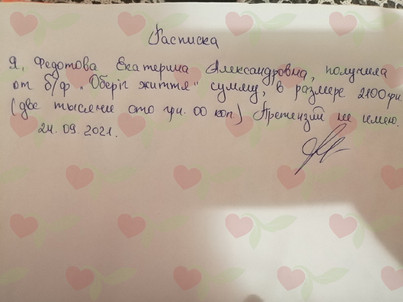 Расписка
Я, Федотова Екатерина Александровна, получила
от б/ф „Оберіг життя" сумму, в размере 2100грн
(две тысячи сто грн. 00 коп.) Претензий не имею.
24.09.2021.